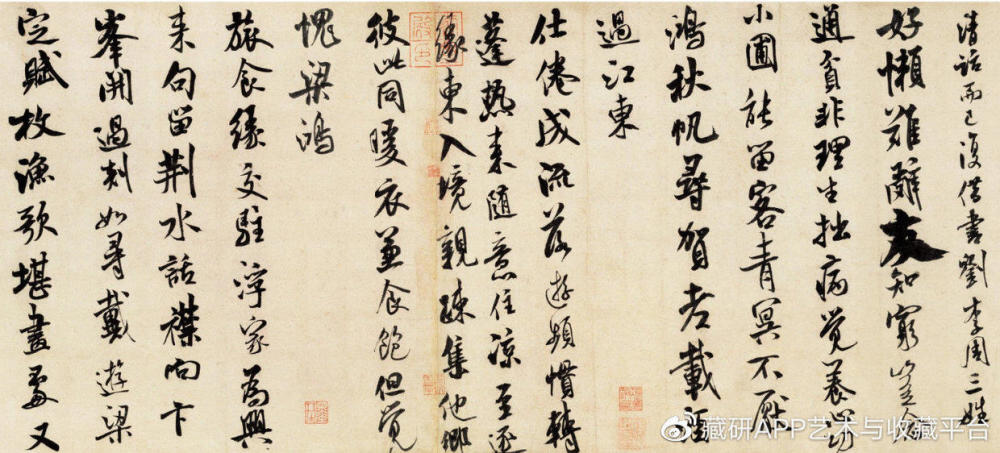 清話而已復借書劉李周三姓
好懶難辭友知窮豈念
通貧非理生拙病覺養心功
小圃能留客青冥不厭
鴻秋帆尋賀老載酒
過江東
仕倦成流落遊頻慣轉
蓬熱來隨意住涼至逐
緣東入境親疎集他鄉
彼此同暖衣兼食飽但覺
愧梁鴻
旅食緣交駐浮家為興
来句留荆水話襟向卞
峯開過剡如尋戴遊梁
定賦枚漁歌堪畫處又
藏研APP艺术与收藏平台